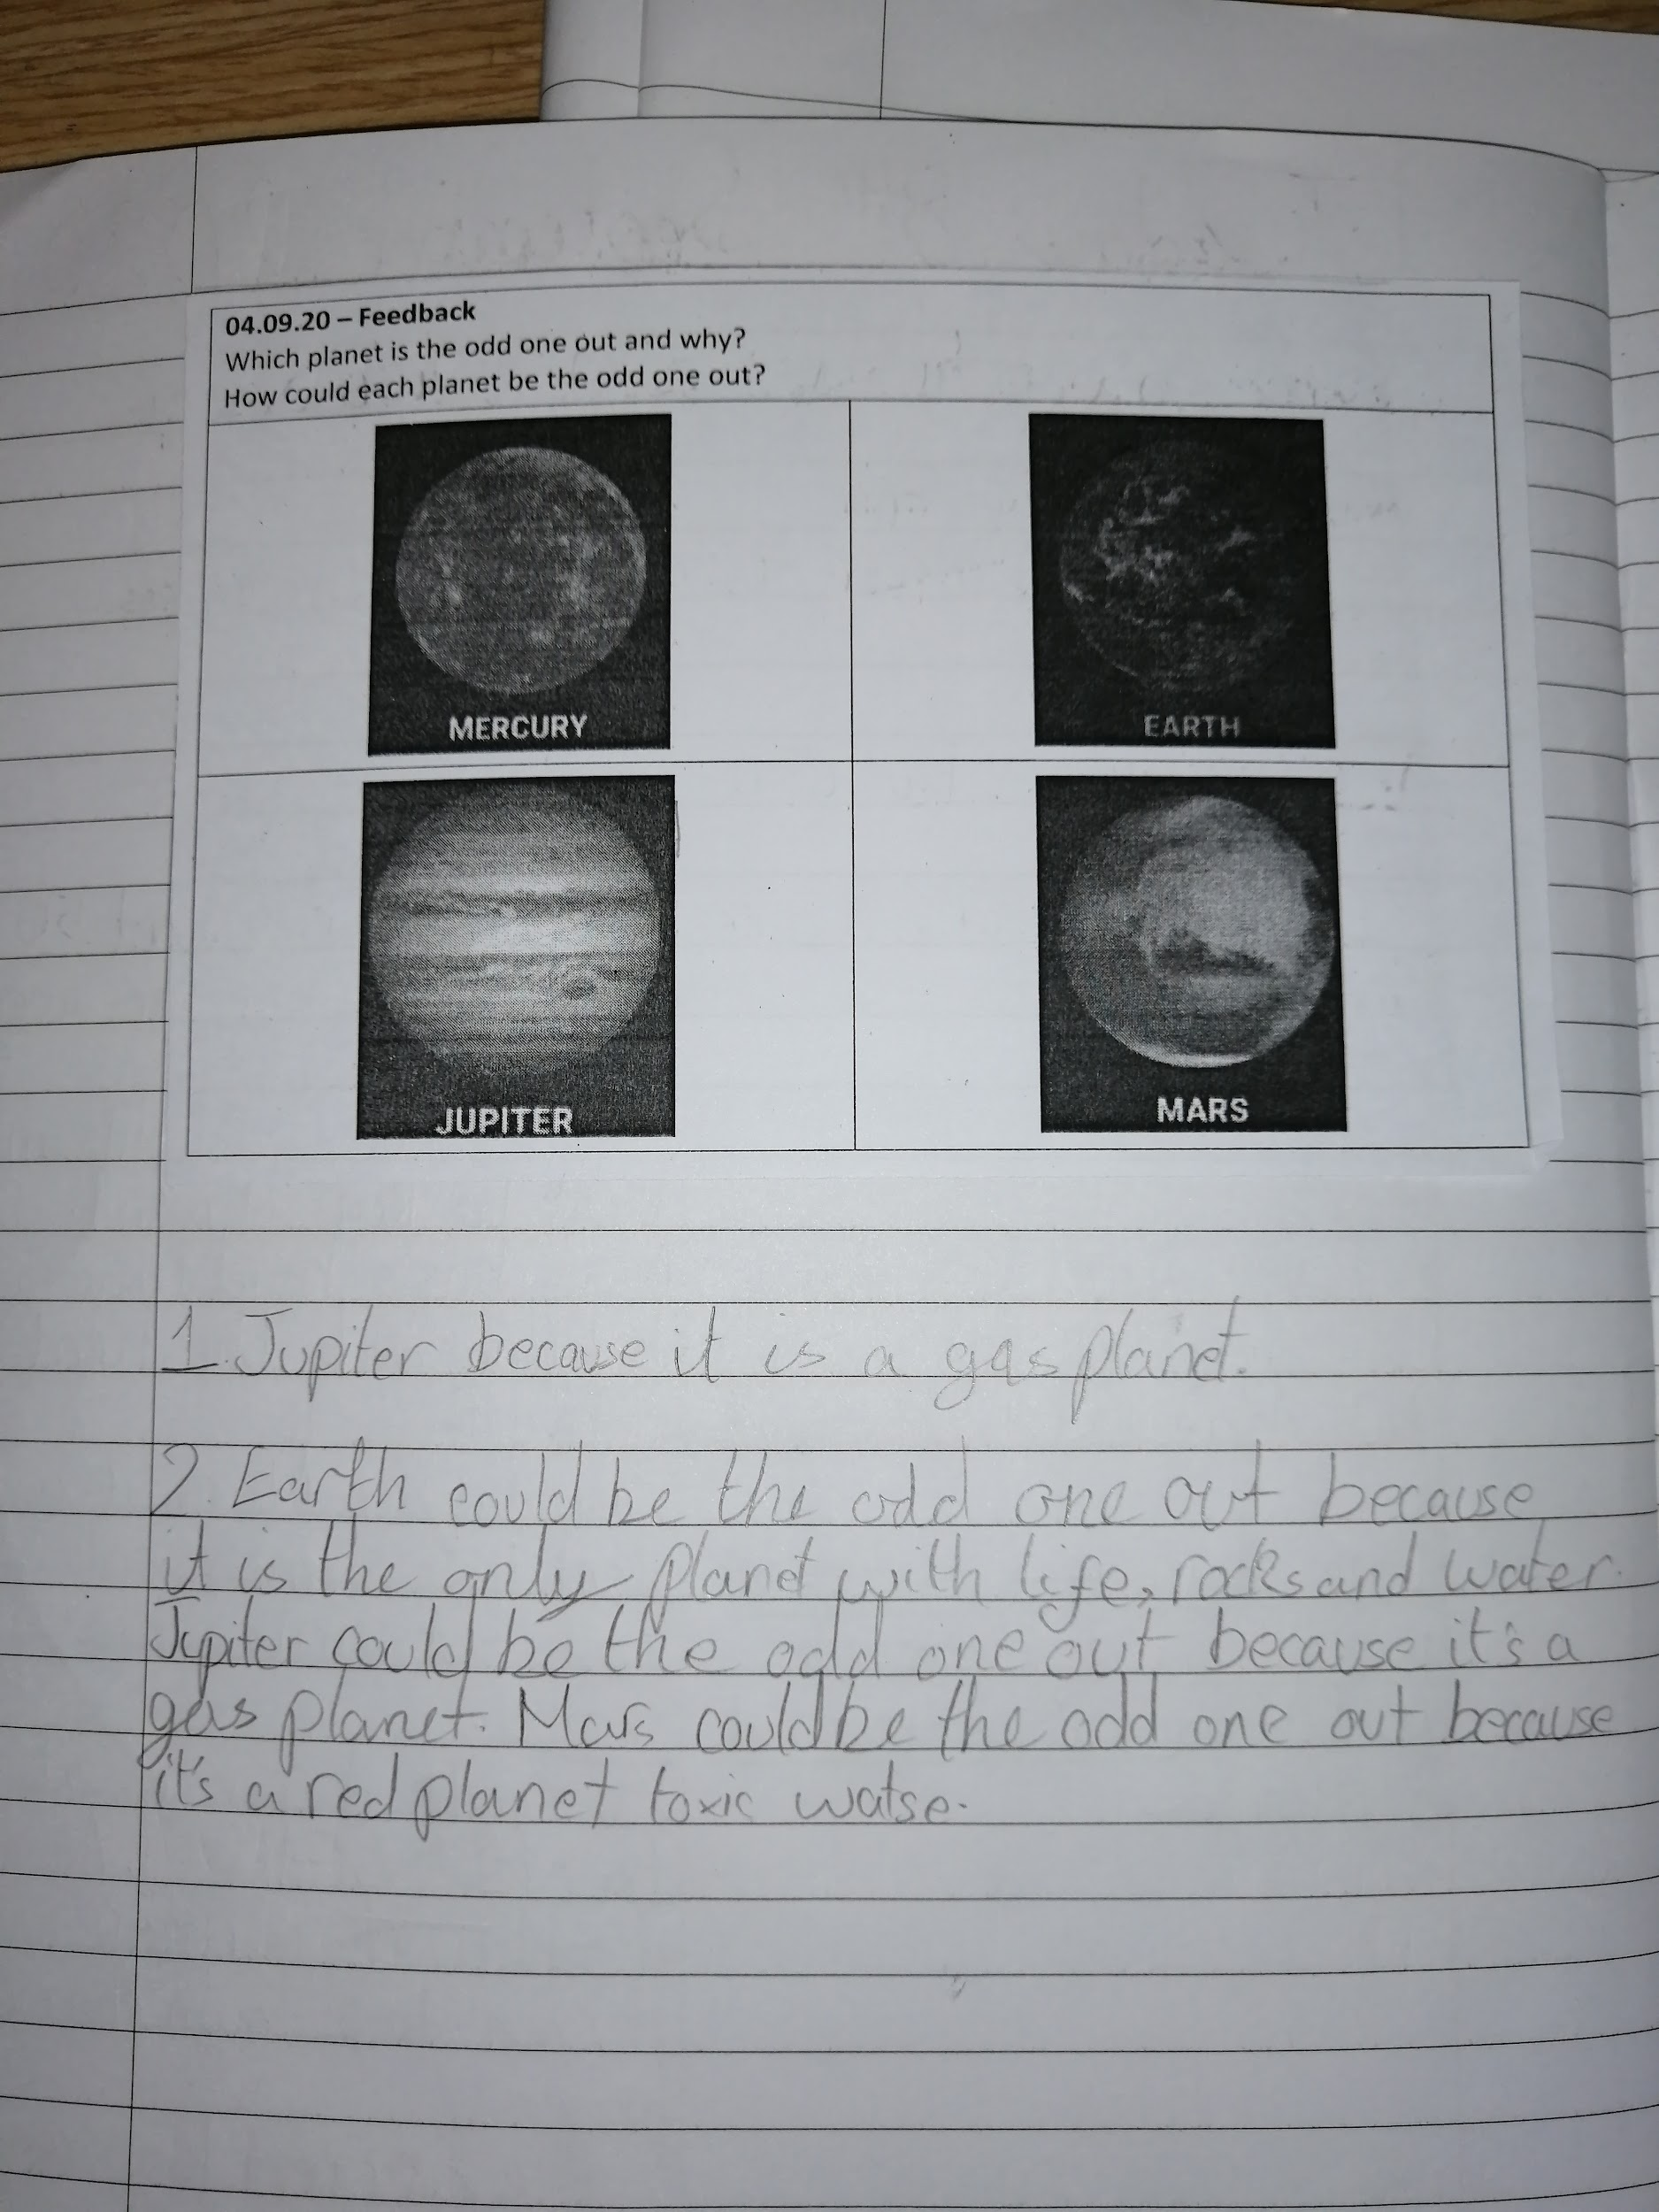 04.09.20 – Feedback
Which planet is the odd one out and why?
How could each planet be the odd one out?
MERCURY
EARTH
JUPITER
MARS
1. Jupiter because it is a gas planet.
2. Earth could be the odd one out because
it is the only planet with life, rocks and water.
Jupiter could be the odd one out because it's a
gas planet. Mars could be the odd one out because
it's a red planet toxic watse.